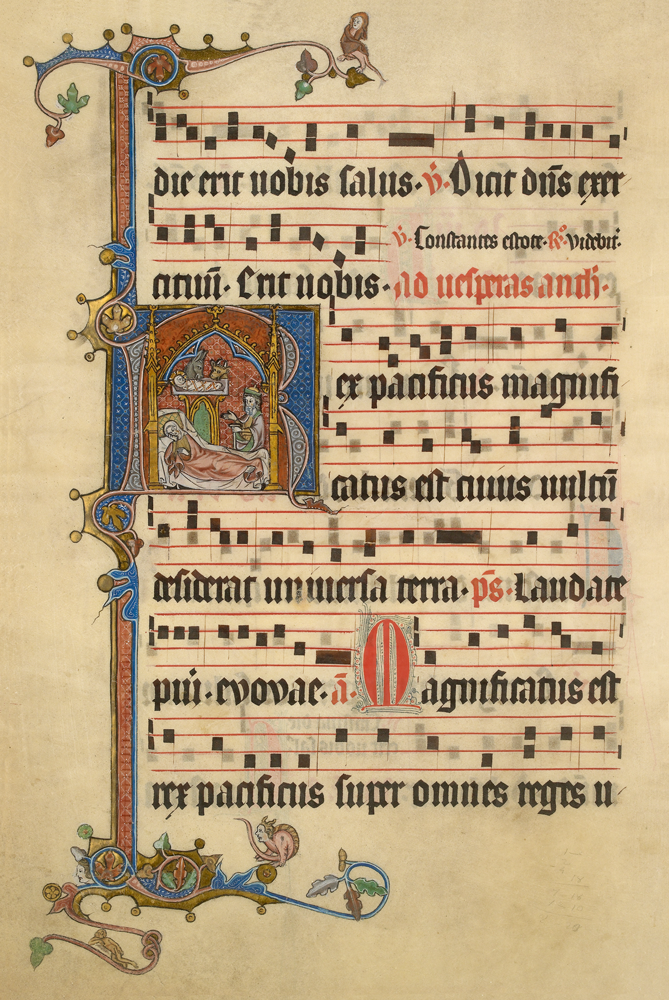 die erit uobis salus. v̄. Dicit dn̄s exer
v̄. Constantes estote. R̄. videbit.
cituū. Erit uobis. ad uesperas anth̄.
Rex pacificus magnifi
catus est cuius uultū
desiderat uniuersa terra. p̄s. Laudate
puri. evovae. ā. Magnificatus est
rex pacificus super omnes reges u